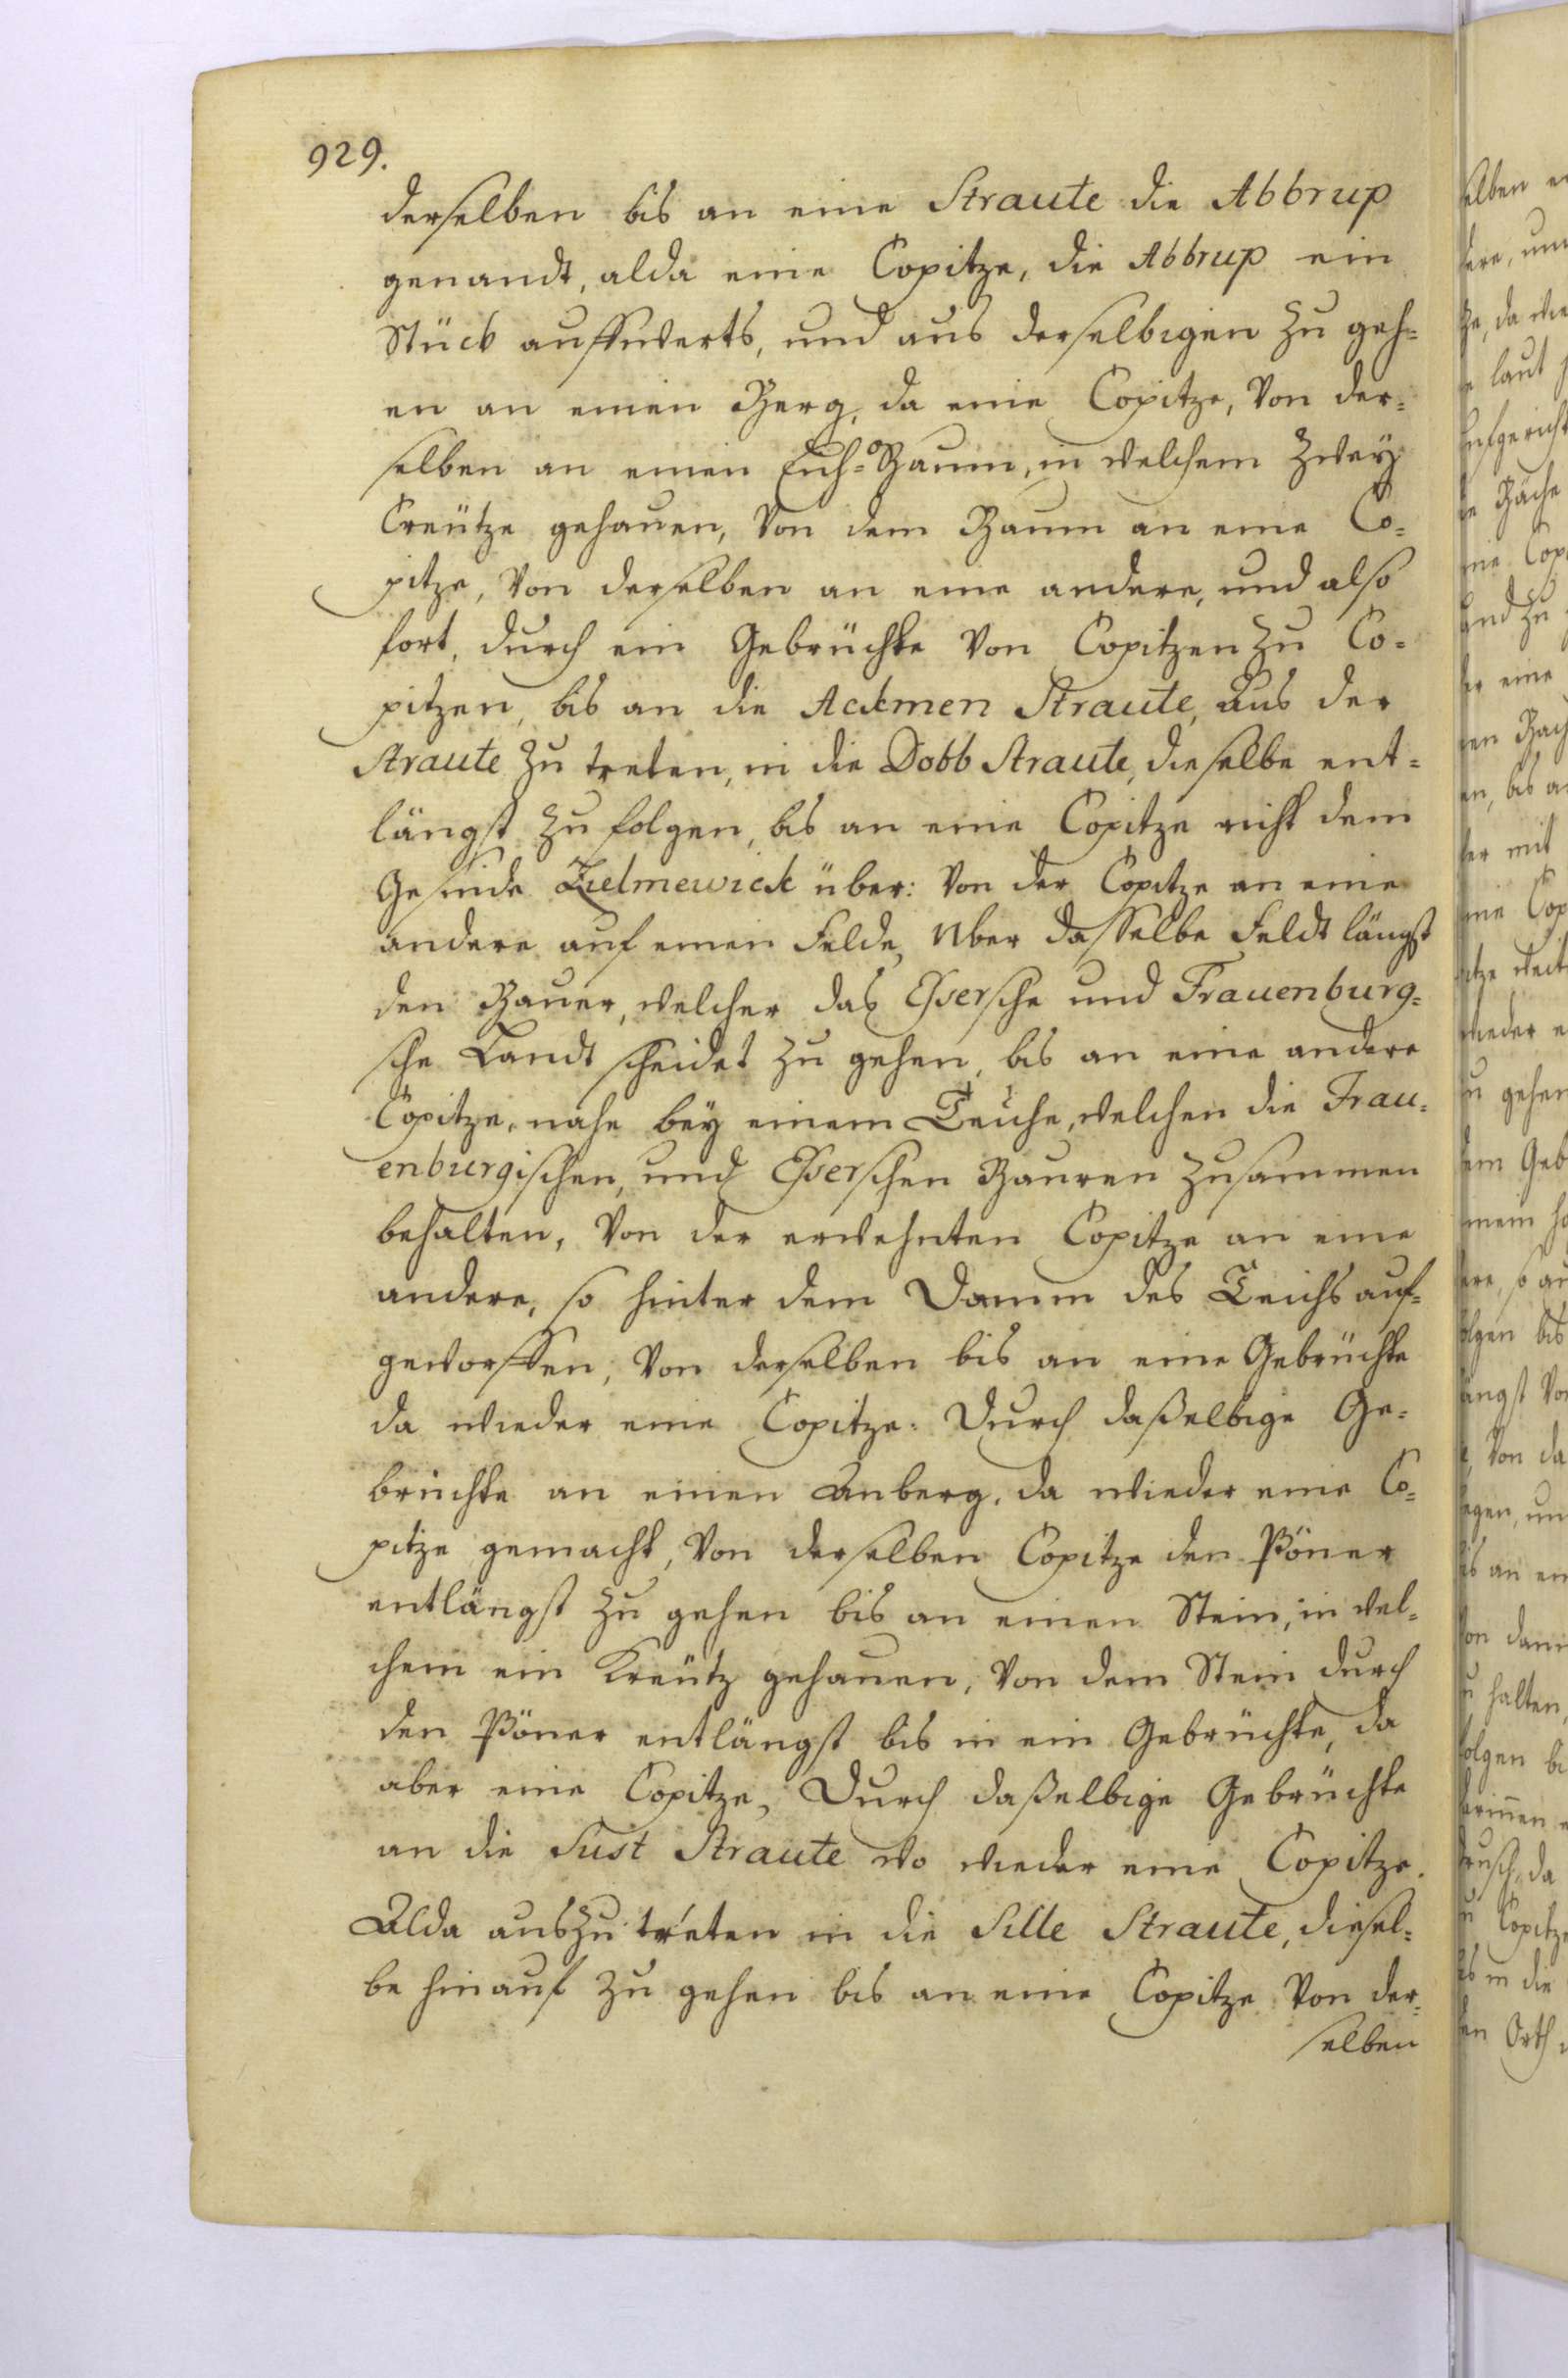 929.
derselben bis an eine Straute die Abbrup
genandt, alda eine Copitze, die Abbrup ein
Stück auffwerts, und aus derselbigen zu geh=
en an einen Berg, da eine Copitze, Von der=
selben an einen Eich=Baum, in welchem Zwey
Creütze gehauen, Von dem Baum an eine Co=
pitze, Von derselben an eine andere, und also
fort, durch ein Gebrüchte Von Copitzen zu Co=
pitzen, bis an die Ackmen Straute, aus der
Straute zu treten, in die Dobb Straute, dieselbe ent=
längst zu folgen, bis an eine Copitze richt dem
Gesinde Zielmewick über: Von der Copitze an eine
andere auf einen Felde, Über dasselbe Feldt längst
den Bauer, welcher das Essersche und Frauenburg=
sche Landt scheidet zu gehen, bis an eine andere
Copitze, nahe bey einem Teiche, welchen die Frau=
enburgischen, und Esserschen Bauren zusammen
behalten, Von der erwehnten Copitze an eine
andere, so hinter dem Damm des Teichs auf=
geworffen, Von derselben bis an eine Gebrüchte
da wieder eine Copitze: Durch daßelbige Ge=
brüchte an einen Anberg, da wieder eine Co=
pitze gemacht, Von derselben Copitze den Pöner
entlängst zu gehen bis an einen Stein, in wel=
chem ein Kreütz gehauen, Von dem Stein durch
den Pöner entlängst bis in ein Gebrüchte, da
aber eine Copitze, Durch daßelbige Gebrüchte
an die Sust Straute wo wieder eine Copitze.
Alda auszutreten in die Sille Straute, diesel=
be hinauf zu gehen bis an eine Copitze Von der=
selben